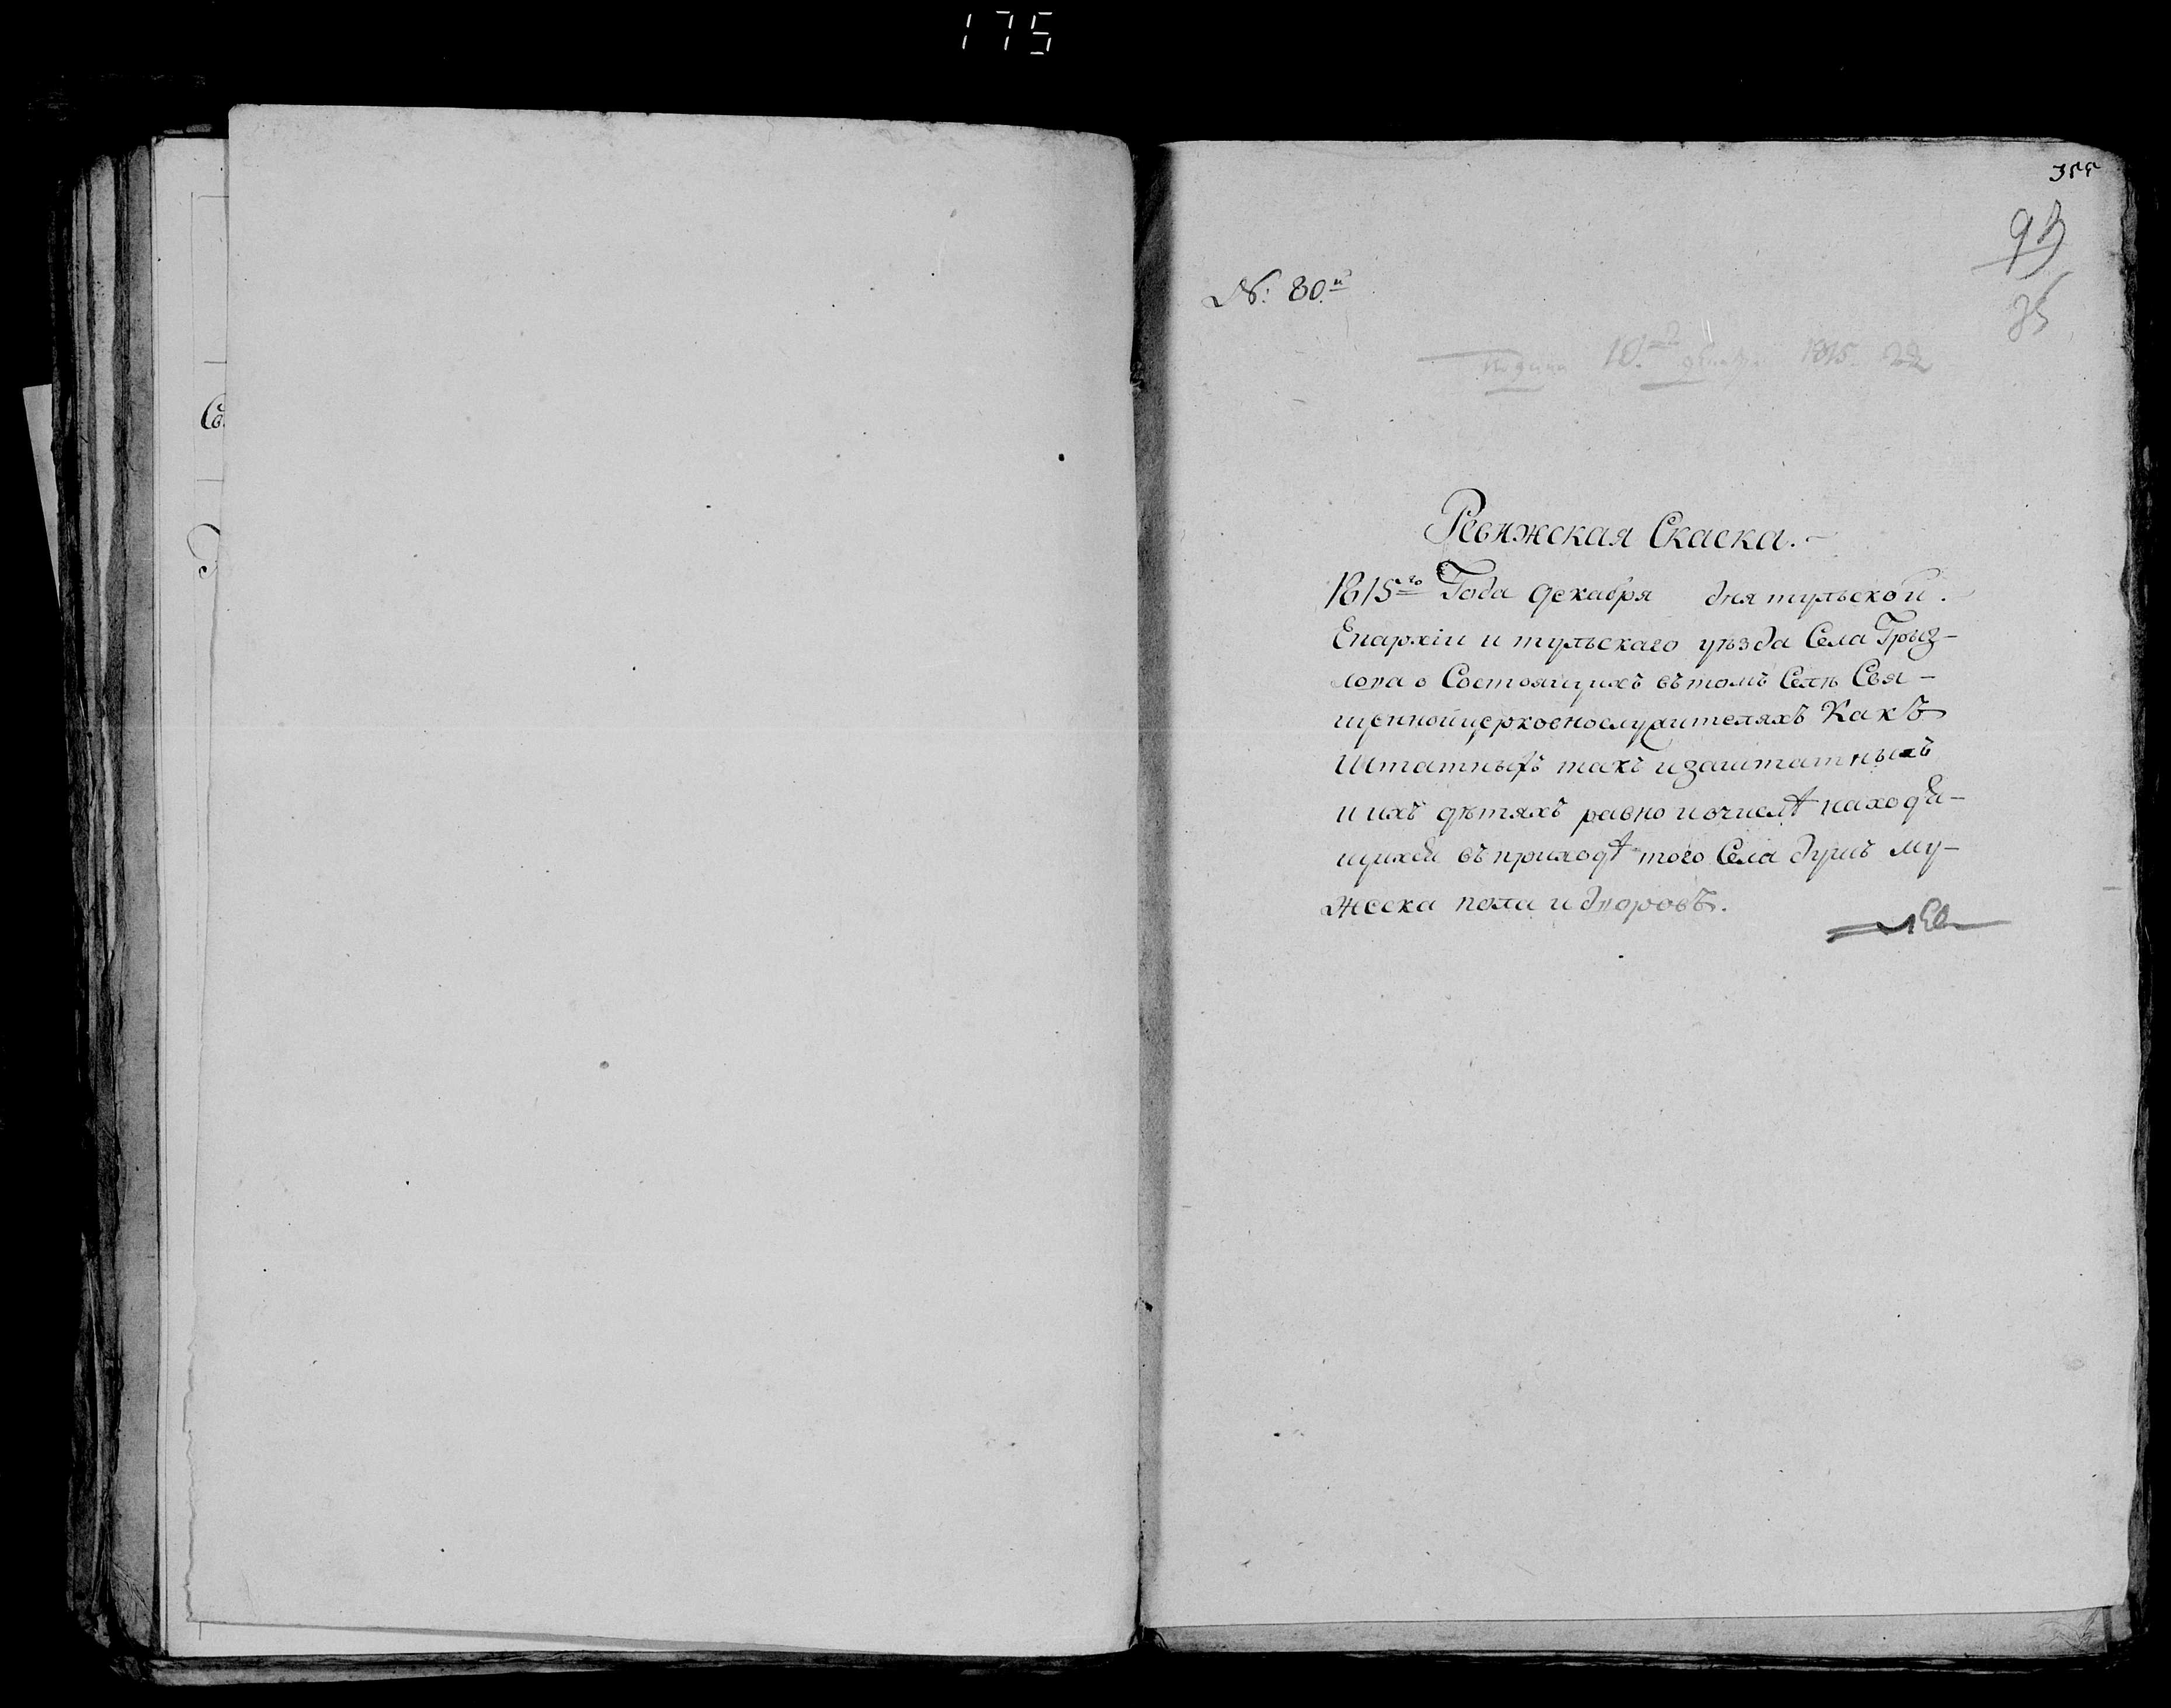 175
355
93
35
№: 80.й
10.го 1815.
Ревижская Скаска.
1815го Года декабря дня тульской.
Епархіи и тульскаго уѣзда Села Грыз-
лова о Состоящихъ въ томъ Селѣ Свя-
щенноицерковнослужителяхъ Какъ
Штатныхъ такъ изаштатныхъ
и ихъ дѣтяхъ равно ичислѣ находя-
щихся въ приходѣ того Села душъ му-
жеска пола и дворовъ.